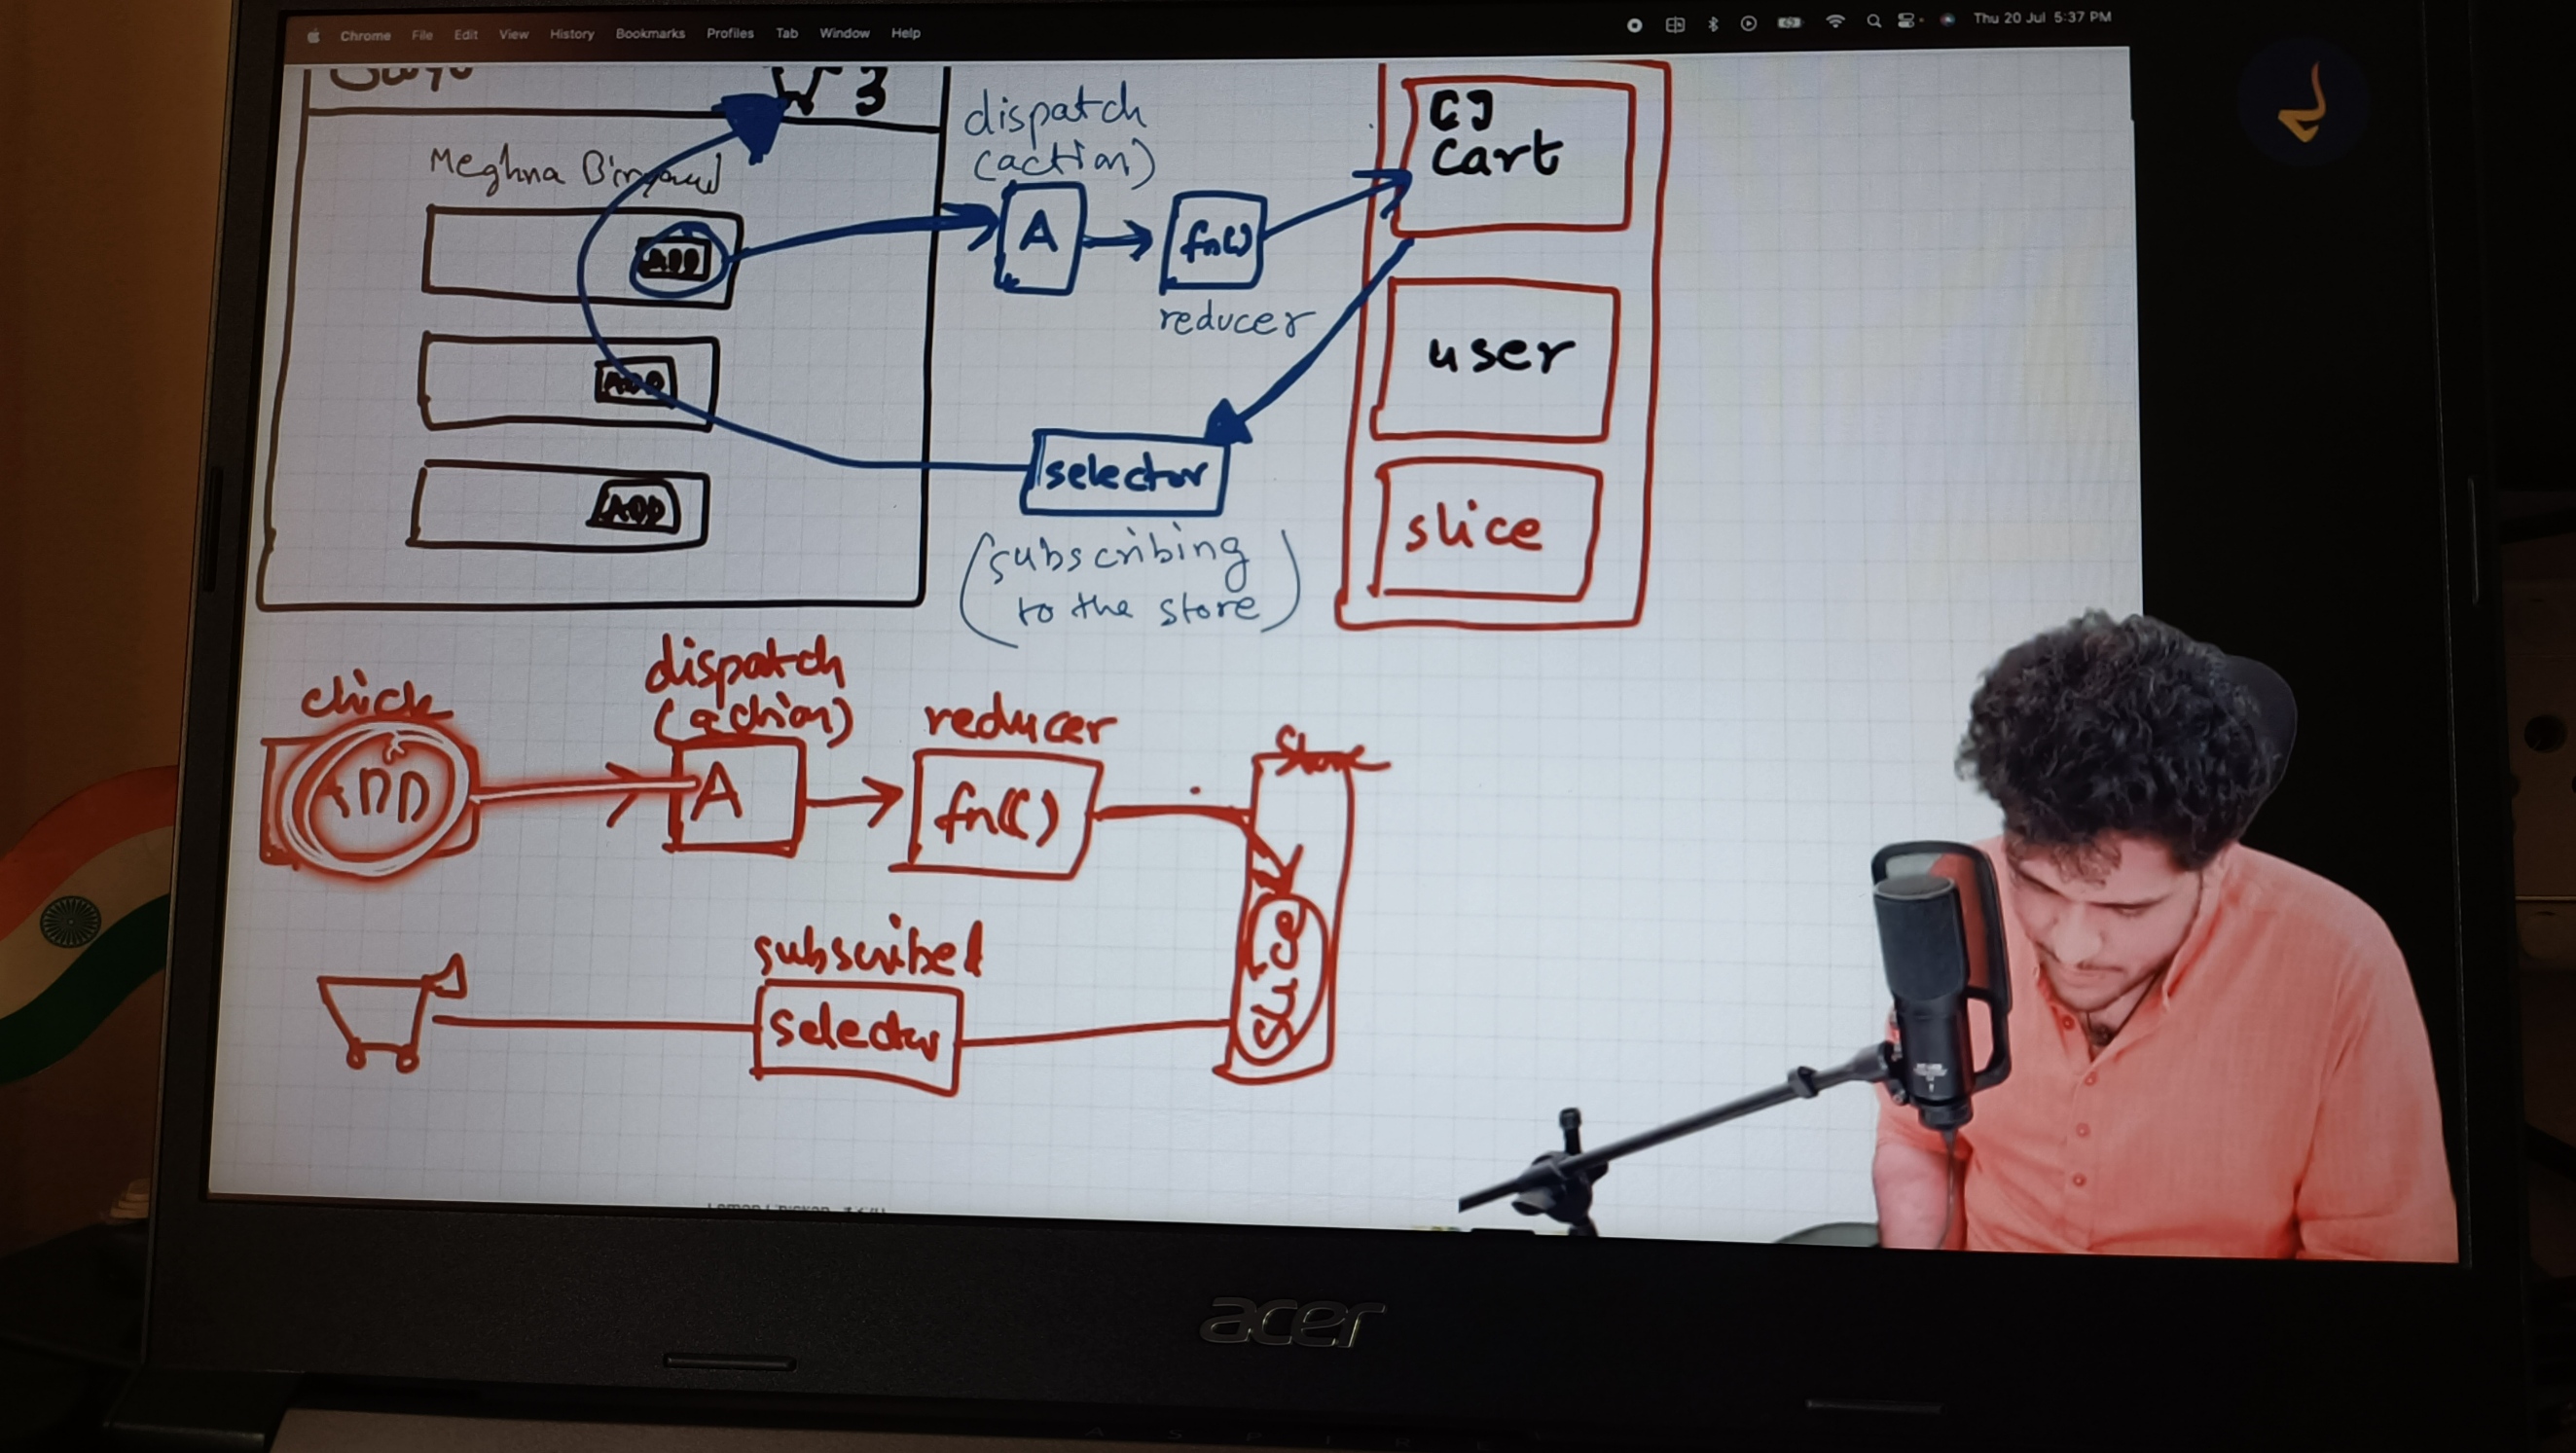 Chrome File Edit View History Bookmarks Profiles Tab Window Help
Thu 20 Jul 5:37 PM
3
Meghna
ADD
ADD
ADD
dispatch
(action)
A
fn()
reducer
[]
Cart
user
slice
selector
(subscribing
to the store)
click
ADD
dispatch
(action)
A
reducer
fn()
Store
SLICE
subscribed
selector
acer
ASPIRE